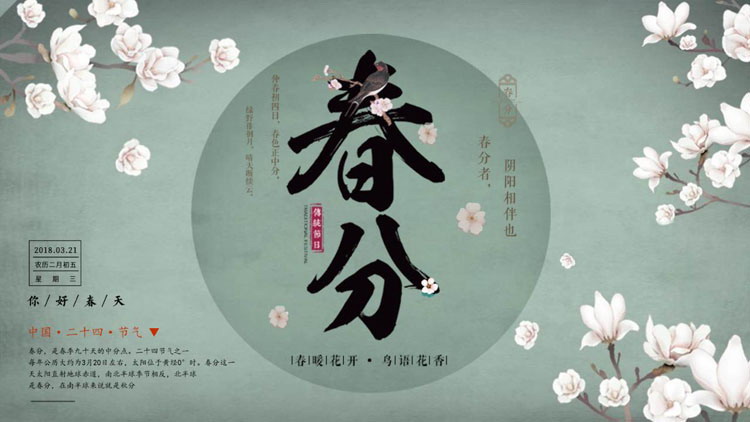 春分
仲春初四日，春色正中分。
绿野徘徊月，晴天断续云。
春分
春分者，
阴阳相伴也
傳統節日
TRADITIONAL FESTIVAL
春暖花开·鸟语花香
2018.03.21
农历二月初五
星期三
你/好/春/天
中国·二十四·节气
春分，是春季九十天的中分点。二十四节气之一
每年公历大约为3月20日左右，太阳位于黄经0°时。春分这一
天太阳直射地球赤道，南北半球季节相反，北半球
是春分，在南半球来说就是秋分